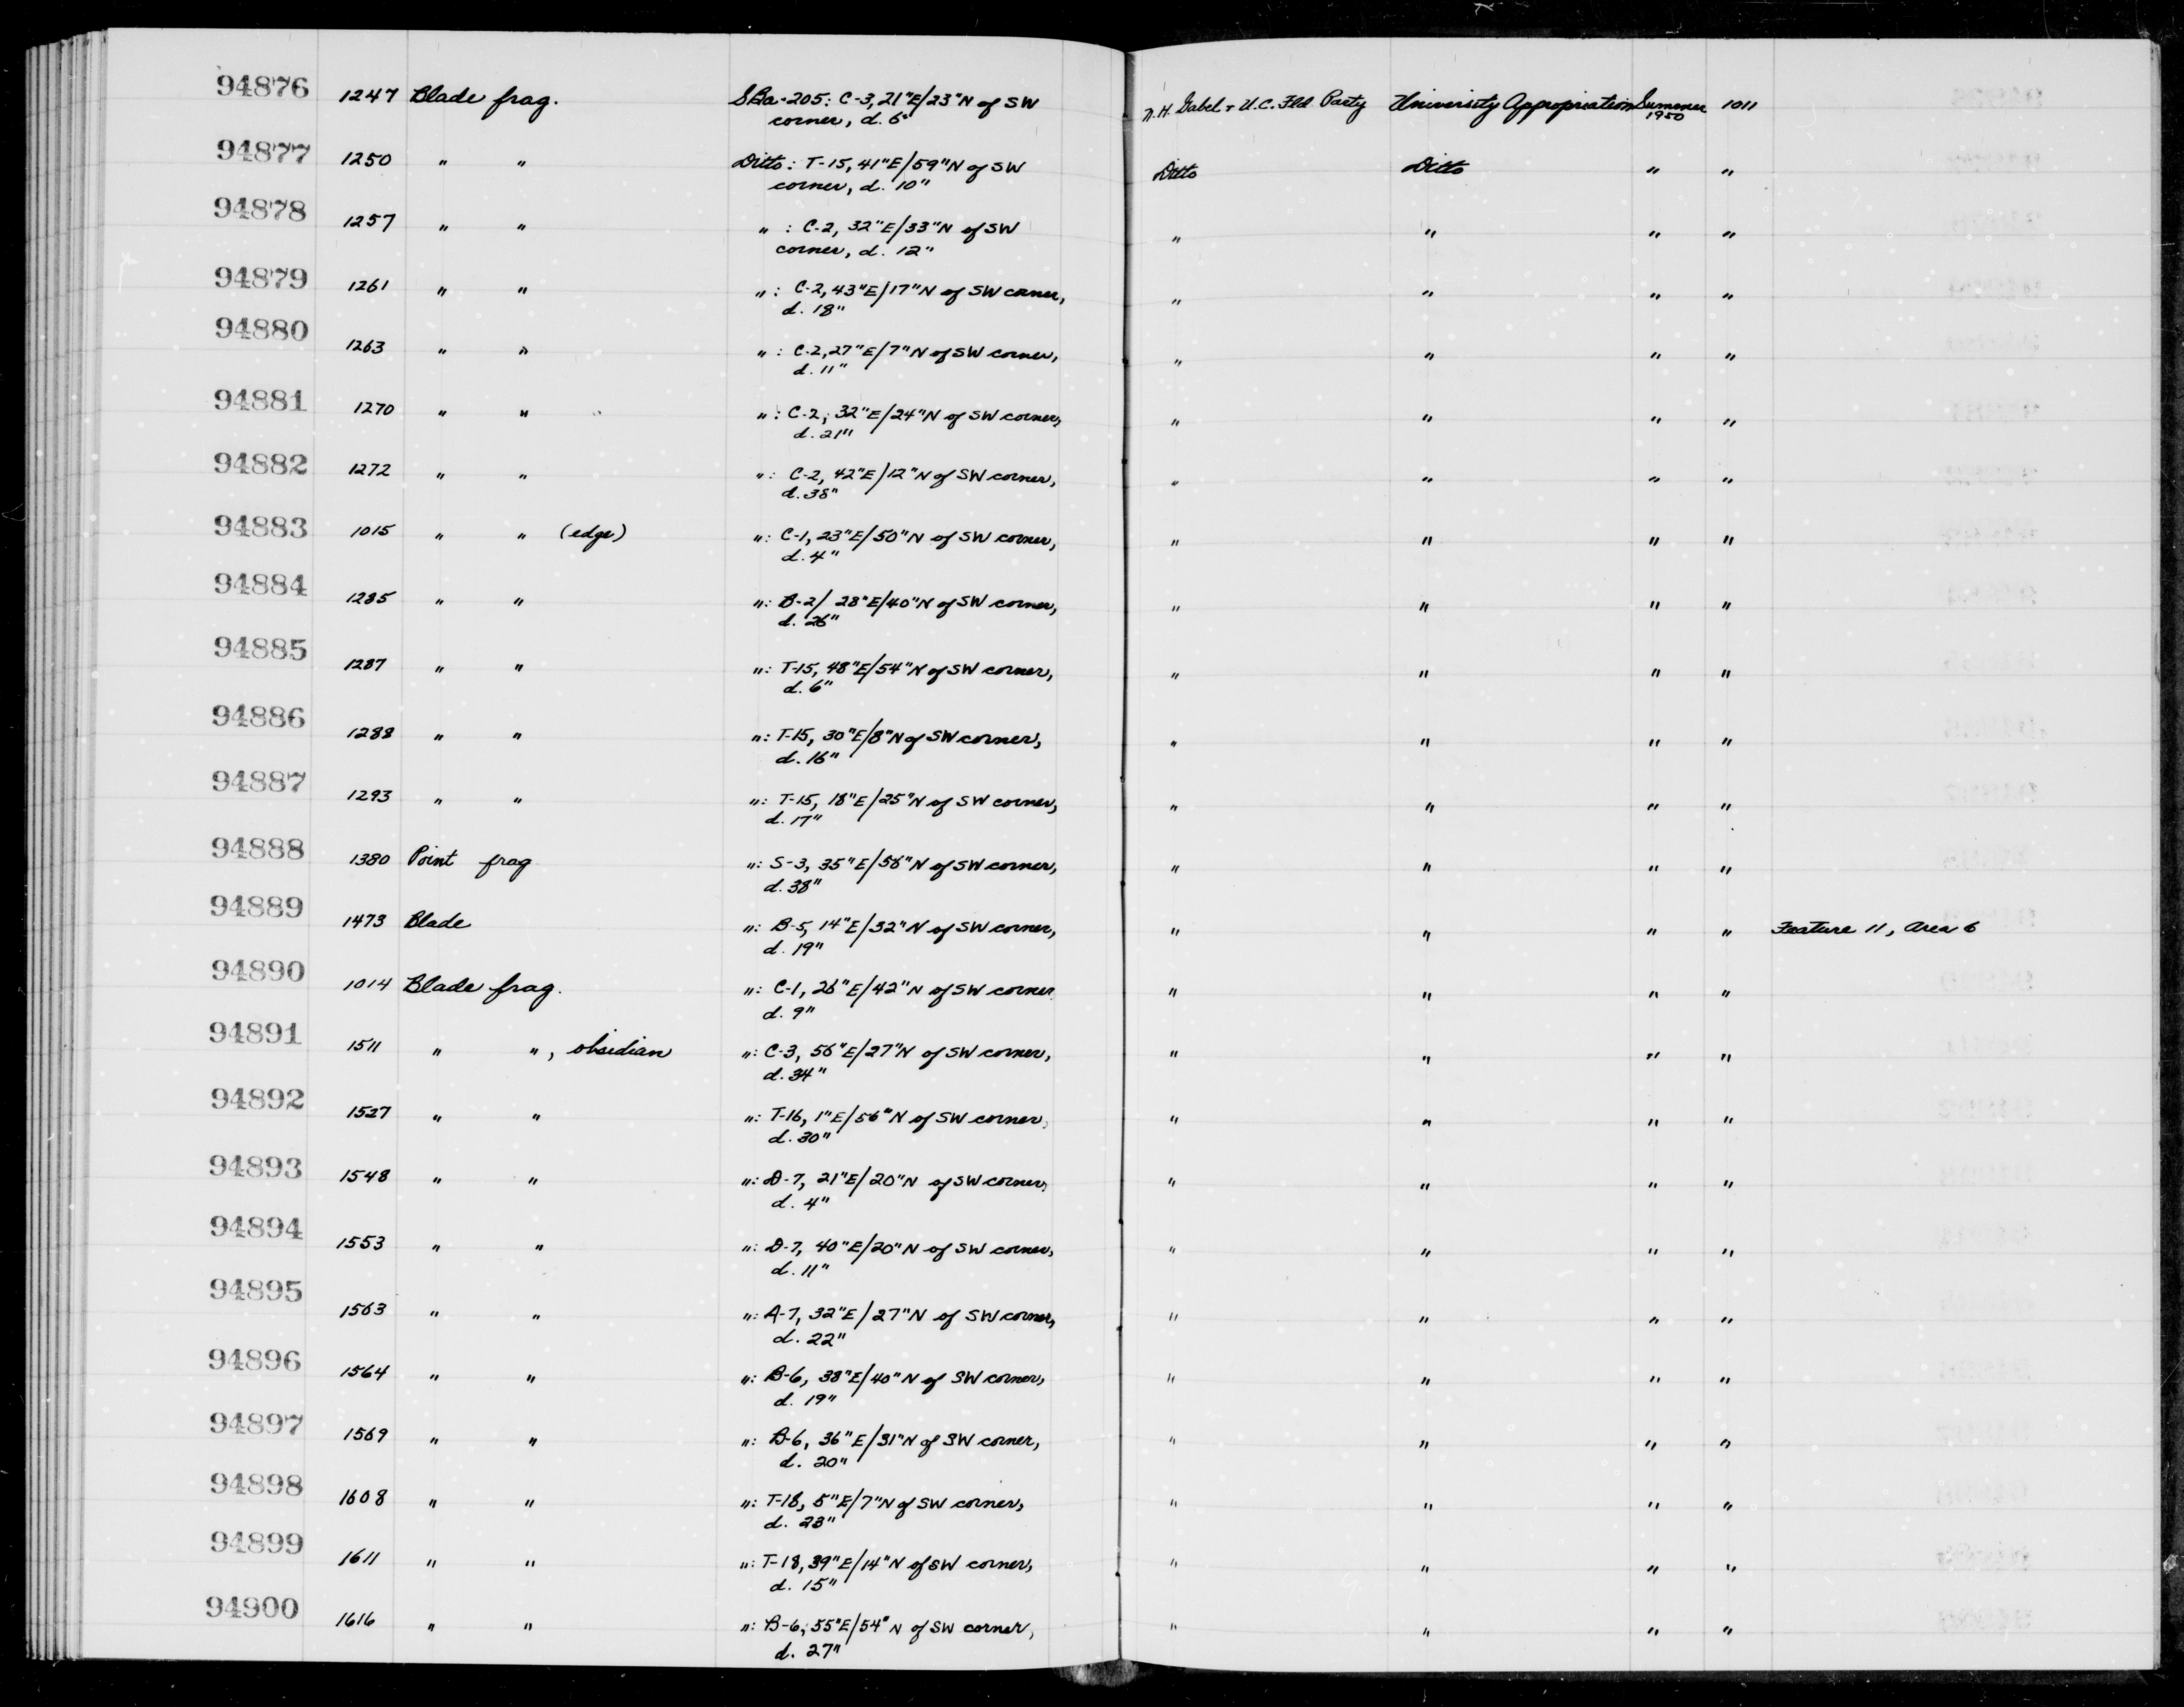 94876 1247 Blade frag. SBa-205: C-3, 21"E/23"N of SW corner, d. 6" N.H. Gabel + U.C. Fld Party University Appropriation Summer 1950 1011
94877 1250 " " Ditto: T-15, 41"E/59"N of SW corner, d. 10" Ditto Ditto " "
94878 1257 " " " : C-2, 32"E/33"N of SW corner, d. 12" " " " "
94879 1261 " " " : C-2, 43"E/17"N of SW corner, d. 18" " " " "
94880 1263 " " " : C-2, 27"E/7"N of SW corner, d. 11" " " " "
94881 1270 " " " : C-2, 32"E/24"N of SW corner, d. 21" " " " "
94882 1272 " " " : C-2, 42"E/12"N of SW corner, d. 38" " " " "
94883 1015 " " (edge) " : C-1, 23"E/50"N of SW corner, d. 4" " " " "
94884 1285 " " " : B-2/ 28"E/40"N of SW corner, d. 26" " " " "
94885 1287 " " " : T-15, 48"E/54"N of SW corner, d. 6" " " " "
94886 1288 " " " : T-15, 30"E/8"N of SW corner, d. 16" " " " "
94887 1293 " " " : T-15, 18"E/25"N of SW corner, d. 17" " " " "
94888 1380 Point frag " : S-3, 35"E/58"N of SW corner, d. 38" " " " "
94889 1473 Blade " : B-5, 14"E/32"N of SW corner, d. 19" " " " " Feature 11, Area 6
94890 1014 Blade frag. " : C-1, 26"E/42"N of SW corner d. 9" " " " "
94891 1511 " " , obsidian " : C-3, 56"E/27"N of SW corner, d. 34" " " " "
94892 1527 " " " : T-16, 1"E/56"N of SW corner, d. 30" " " " "
94893 1548 " " " : D-7, 21"E/20"N of SW corner, d. 4" " " " "
94894 1553 " " " : D-7, 40"E/20"N of SW corner, d. 11" " " " "
94895 1563 " " " : A-7, 32"E/27"N of SW corner, d. 22" " " " "
94896 1564 " " " : B-6, 38"E/40"N of SW corner, d. 19" " " " "
94897 1569 " " " : B-6, 36"E/31"N of SW corner, d. 20" " " " "
94898 1608 " " " : T-18, 5"E/7"N of SW corner, d. 23" " " " "
94899 1611 " " " : T-18, 39"E/14"N of SW corner, d. 15" " " " "
94900 1616 " " " : B-6, 55"E/54"N of SW corner, d. 27" " " " "